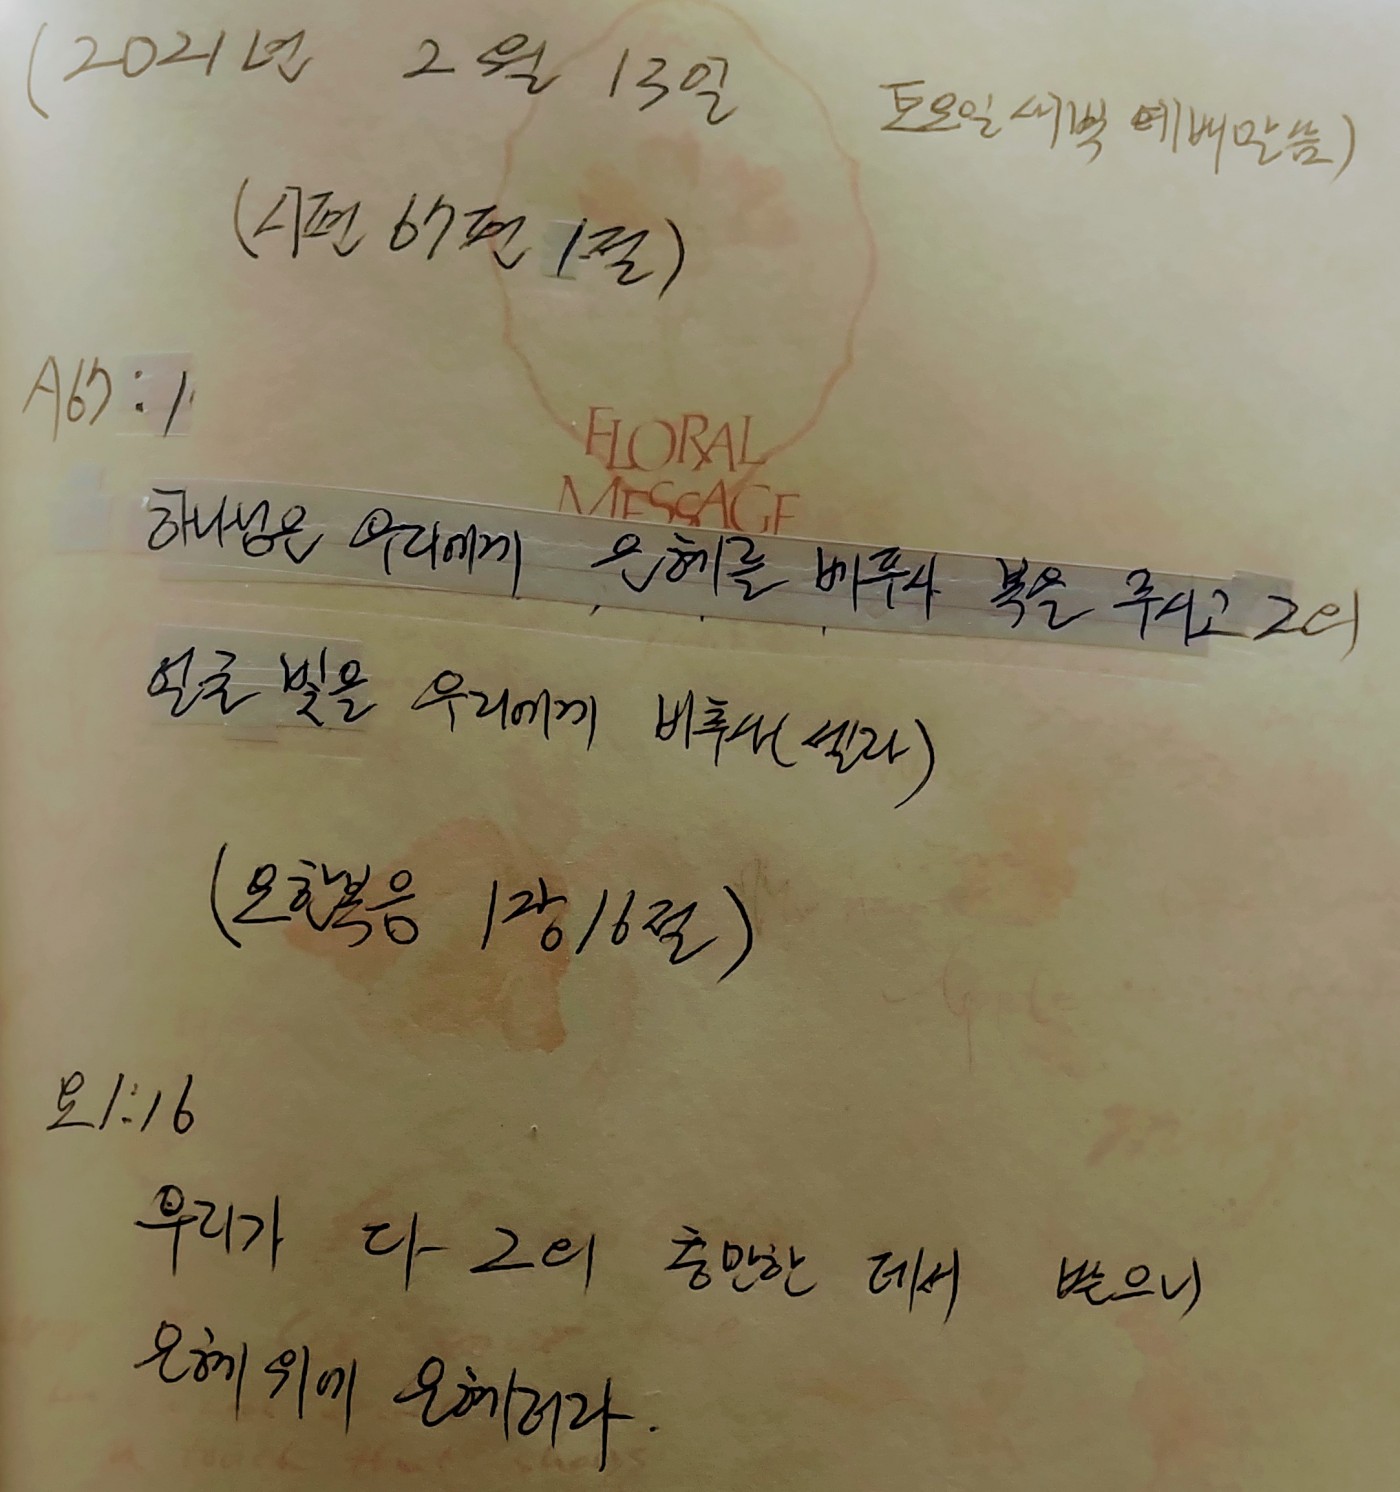 (2021년 2월 13일 토요일 새벽 예배말씀)
(시편 67편 1절)
시67:1
FLORAL
MESSAGE
하나님은 우리에게 은혜를 베푸사 복을 주시고 그의
얼굴 빛을 우리에게 비추사(셀라)
(요한복음 1장 16절)
요1:16
우리가 다 그의 충만한 데서 받으니
은혜 위에 은혜러라.